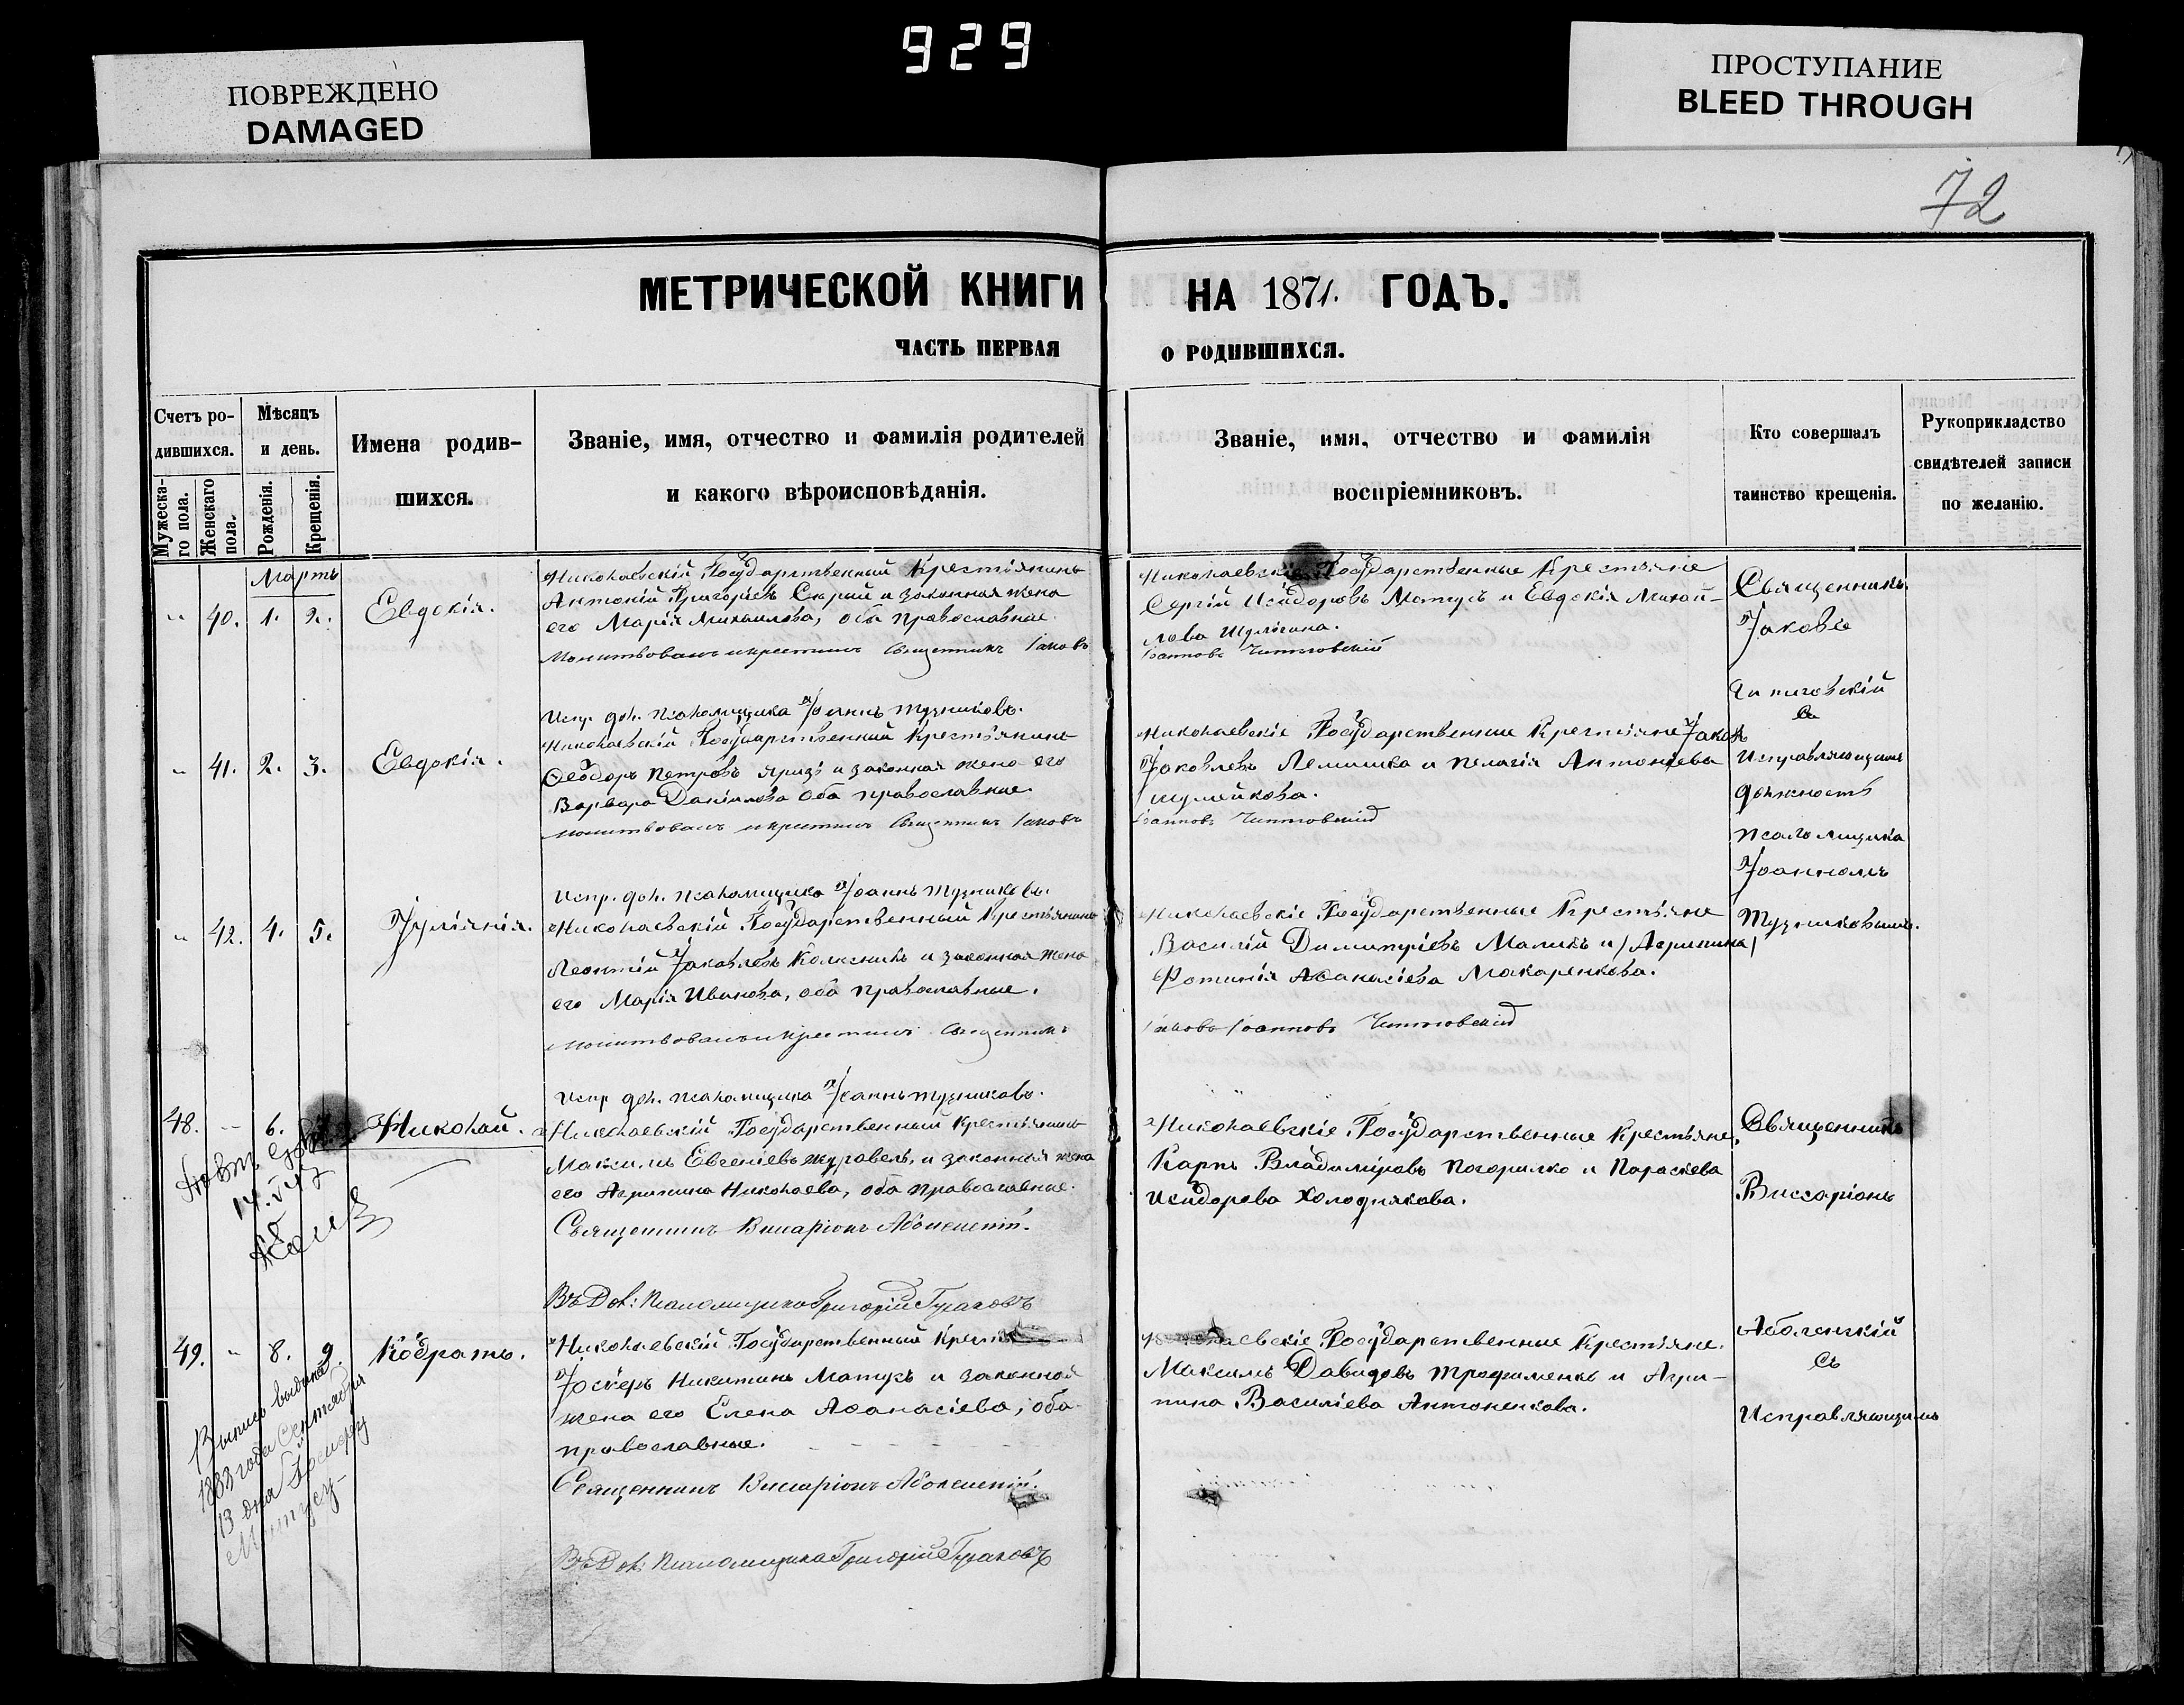 929
ПОВРЕЖДЕНО
DAMAGED
ПРОСТУПАНИЕ
BLEED THROUGH
72
МЕТРИЧЕСКОЙ КНИГИ НА 1871. ГОДЪ.
ЧАСТЬ ПЕРВАЯ О РОДИВШИХСЯ.
Счетъ ро-
дившихся.
Мужеска-
го пола.
Женскаго
пола.
Мѣсяцъ
и день.
Рожденія.
Крещенія.
Имена родив-
шихся.
Званіе, имя, отчество и фамилія родителей
и какого вѣроисповѣданія.
Званіе, имя, отчество и фамилія
воспріемниковъ.
Кто совершалъ
таинство крещенія.
Рукоприкладство
свидѣтелей записи
по желанію.
Мартъ
" 40. 1. 2. Евдокія.
Николаевскій Государственный Крестьянинъ
Антоній Григоріевъ Сѣрый и законная жена
его Марія Михаилова, оба православные.
Молитвовалъ и крестилъ Священникъ Іаковъ
Николаевскіе Государственные Крестьяне
Сергій Исидоровъ Матусъ и Евдокія Михай-
лова Шулгина.
Іоанновъ Чипиговскій
Священникъ
Іаковъ
Чипиговскій
съ
Исправляющимъ
должность
псаломщика
Іоанномъ
Тузниковымъ.
Испр. дол. псаломщика Іоаннъ Тузниковъ.
" 41. 2. 3. Евдокія.
Николаевскій Государственный Крестьянинъ
Ѳеодоръ Петровъ Яризъ и законная жена его
Варвара Даніилова оба православные.
молитвовалъ и крестилъ Священникъ Іаковъ
Николаевскіе Государственные Крестьяне Іаковъ
Іаковлевъ Лемишка и Пелагія Антоніева
Шулейкова.
Іоанновъ Чипиговскій
Испр. дол. псаломщика Іоаннъ Тузниковъ.
" 42. 4. 5. Іуліанія.
Николаевскій Государственный Крестьянинъ
Леонтій Іаковлевъ Колисникъ и законная жена
его Марія Иванова, оба православные.
молитвовалъ и крестилъ Священникъ
Николаевскіе Государственные Крестьяне
Василій Димитріевъ Маликъ и /Агрипина/
Фотинія Аѳанасіева Макаренкова.
Іаковъ Іоанновъ Чипиговскій
Испр. дол. псаломщика Іоаннъ Тузниковъ.
48. " 6. Николай.
Николаевскій Государственный Крестьянинъ
Максимъ Евгеніевъ Журавель, и законная жена
его Агрипина Николаева, оба православные.
Священникъ Висаріонъ Аболенскій.
Николаевскіе Государственные Крестьяне,
Карпъ Владиміровъ Погорилко и Параскева
Исидорова Холоднякова.
Священникъ
Виссаріонъ
Аболенскій
съ
Исправляющимъ
14.V 47
Въ Дол: Псаломщика Григорій Гураховъ
49. " 8. 9. Кодратъ.
Николаевскій Государственный
Іосифъ Никитинъ Матусъ и законная
жена его Елена Аѳанасіева, оба
православные.
Священникъ Висаріонъ Аболенскій.
Государственные Крестьяне.
Максимъ Давидовъ Трофименко и Агри-
пина Василіева Антоненкова.
Выпись выдана
1883 года Сентября
13 дня
Матусу
Въ Дол: Псаломщика Григорій Гураховъ